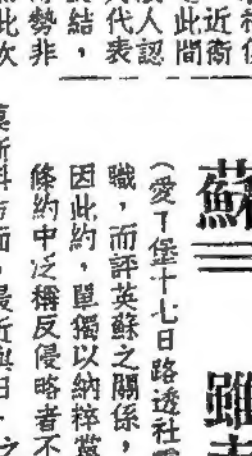 近衞
此間
人認
代表
結,
勢非
此次
蘇
雖
(愛丁堡十七日路透社
職,而評英蘇之關係,
因此約,單獨以納粹黨
條約中泛稱反侵略者不
方面,最近與日,之